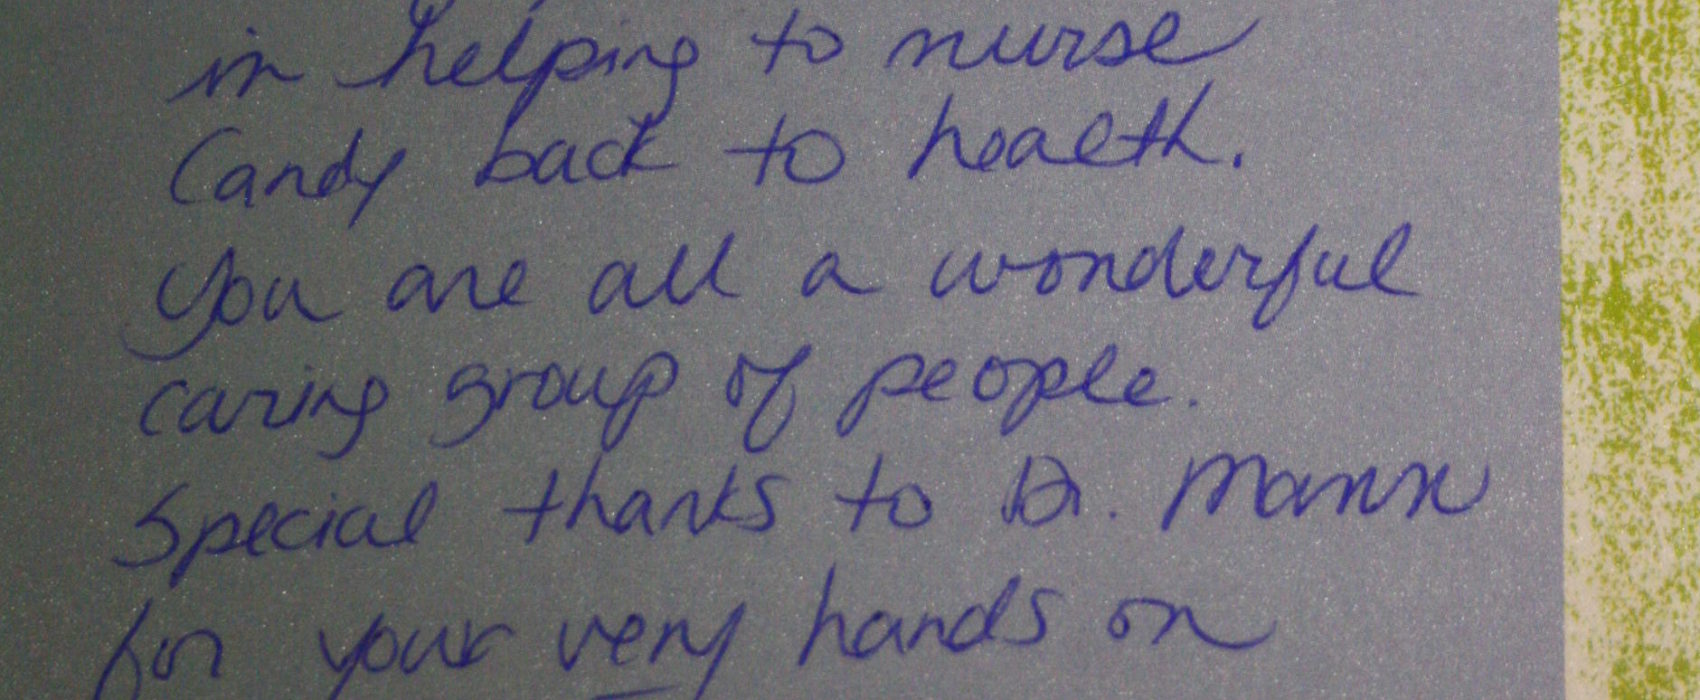 in helping to nurse
Candy back to health.
You are all a wonderful
caring group of people.
Special thanks to Dr. Mann
for your very hands on